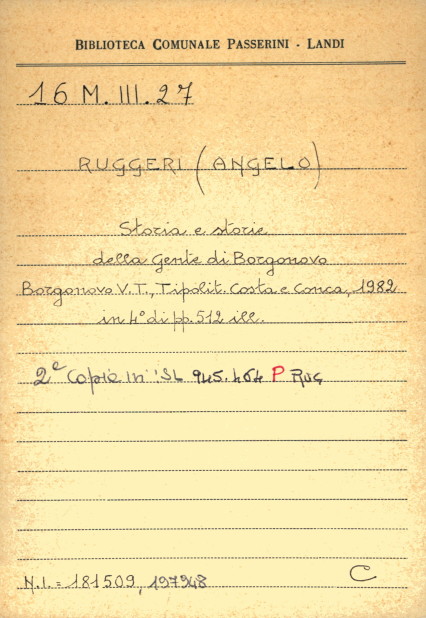 BIBLIOTECA COMUNALE PASSERINI - LANDI
16 M. III. 27
RUGGERI (ANGELO)
Storia e storie
della Gente di Borgonovo
Borgonovo V.T., Tipolit. Costa e Conca, 1982
in 4° di pp. 512 ill.
2ª copia in SL 945.464 P RUG
N.I. = 181509, 197948
C